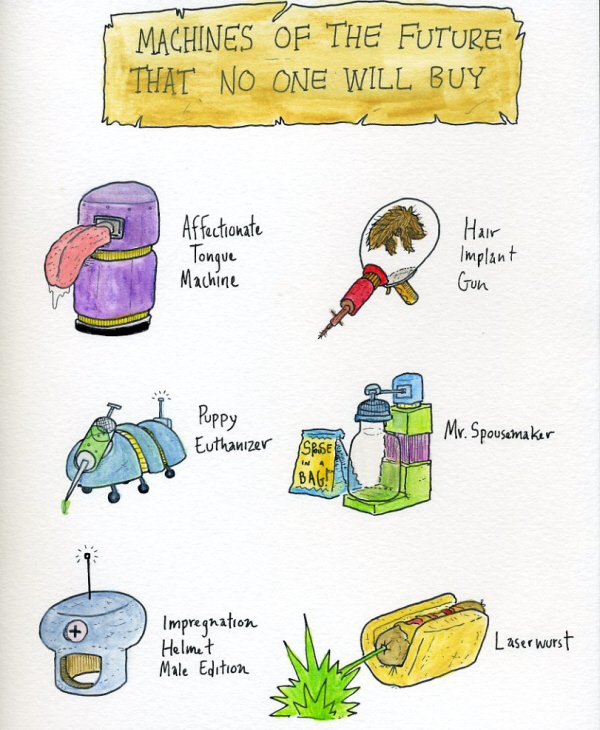 MACHINES OF THE FUTURE
THAT NO ONE WILL BUY
Affectionate
Tongue
Machine
Hair
Implant
Gun
Puppy
Euthanizer
SPOUSE
IN A
BAG!
Mr. Spousemaker
Impregnation
Helmet
Male Edition
Laserwurst